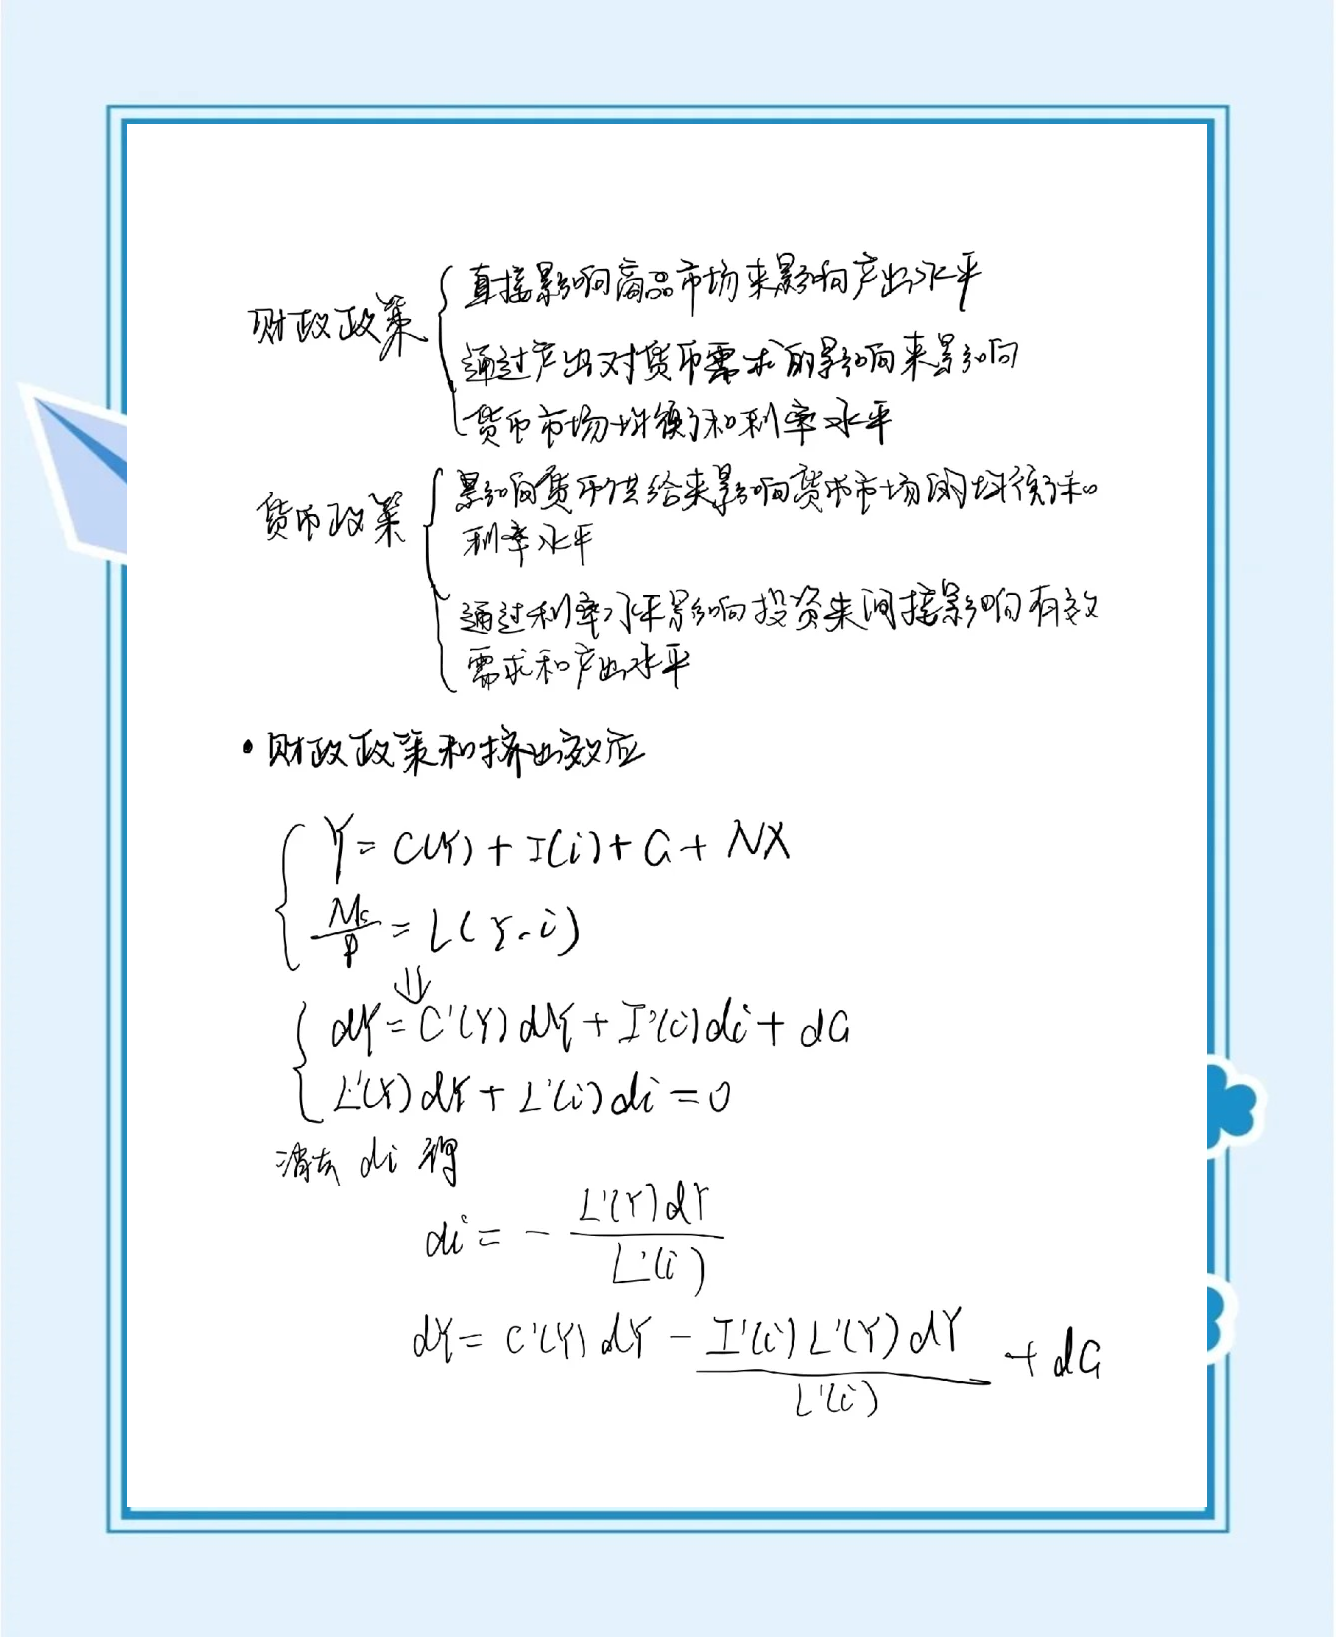 财政政策
直接影响商品市场来影响产出水平
通过产出对货币需求的影响来影响
货币市场均衡和利率水平
货币政策
影响货币供给来影响货币市场的均衡和
利率水平
通过利率水平影响投资来间接影响有效
需求和产出水平
• 财政政策和挤出效应
Y = C(Y) + I(i) + G + NX
Ms/P = L(Y, i)
⇓
dY = C'(Y) dY + I'(i) di + dG
L'(Y) dY + L'(i) di = 0
消去 di 得
di = - L'(Y) dY / L'(i)
dY = C'(Y) dY - I'(i) L'(Y) dY / L'(i) + dG